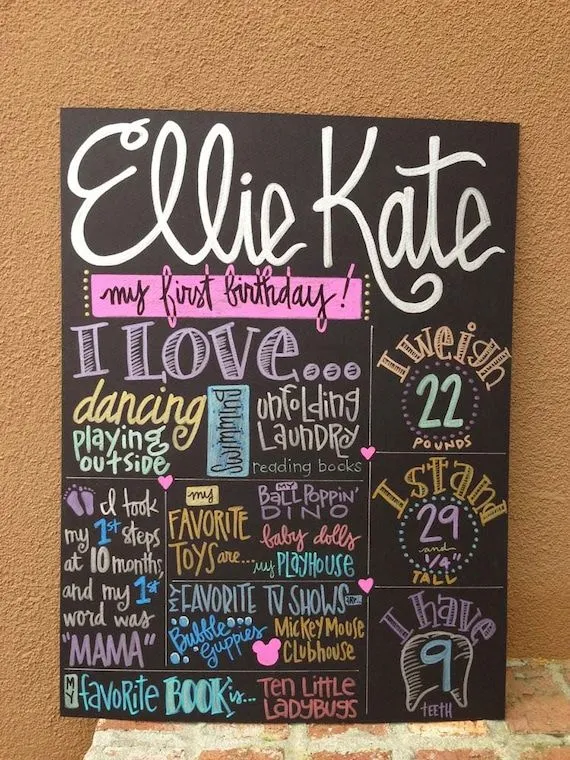 Ellie Kate
my first birthday!
I LOVE...
dancing
playing
outside
swimming
unfolding
LaundRy
reading books
I took
my 1st steps
at 10 months,
and my 1st
word was
"MAMA"
my
FAVORITE
TOYS are...
MY
BALL POPPIN'
DINO
baby dolls
my PLAYHOUSE
MY FAVORITE TV SHOWS are...
Bubble
Guppies
Mickey Mouse
Clubhouse
MY favorite BOOK is...
Ten Little
LadyBugs
I weigh
22
POUNDS
I stand
29
and
1/4"
TALL
I have
9
TEETH